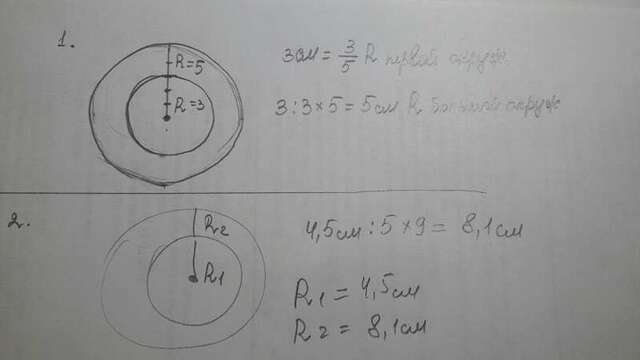 1.
R=5
R=3
3см = 3/5 R первой окруж.
3:3×5=5см R большей окруж
2.
R2
R1
4,5см:5×9= 8,1см
R1 = 4,5см
R2 = 8,1см